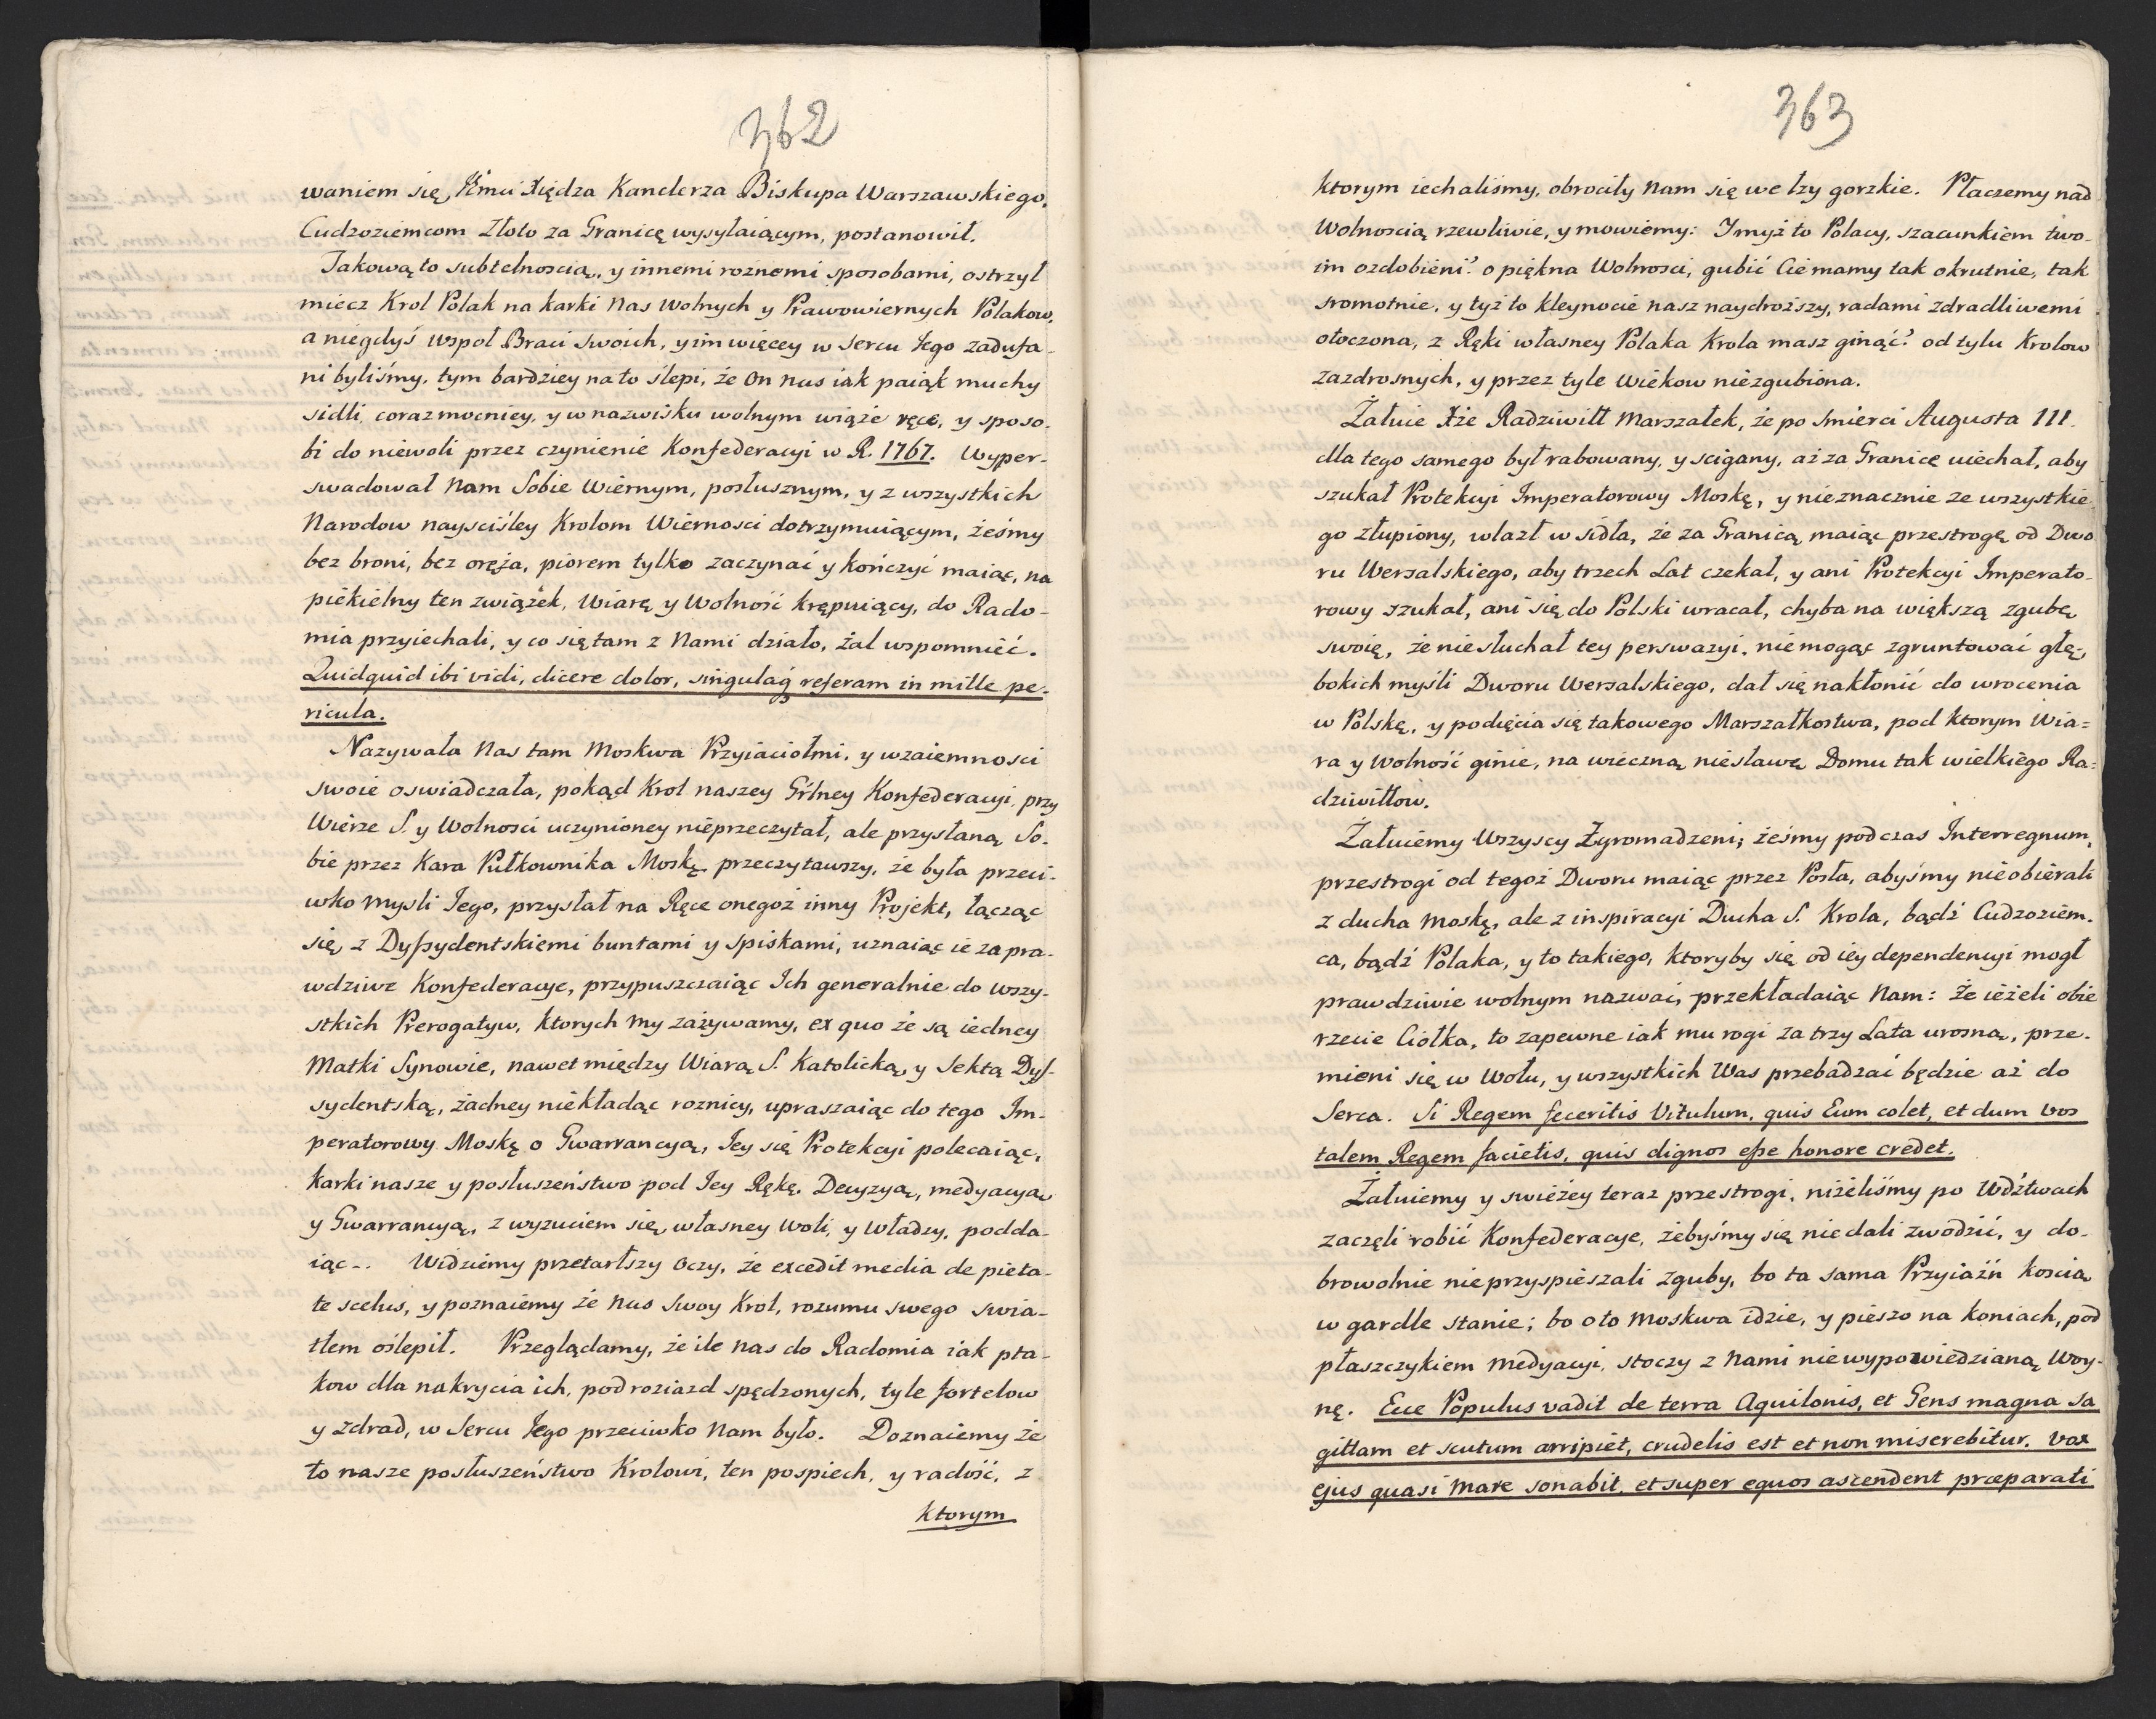 362
waniem się, JEmci Xiędza Kanclerza Biskupa Warszawskiego,
Cudzoziemcom Złoto za Granicę wysyłaiącym, postanowił.
Takową to subtelnoscią, y innemi roznemi sposobami, ostrzył
miecz Krol Polak na karki Nas Wolnych y Prawowiernych Polakow,
a niegdyś wspoł Braci swoich, y im więcey w Sercu Jego zadufa-
ni byliśmy, tym bardziey na to ślepi, że On nas iak paiąk muchy
sidli, coraz mocniey, y w nazwisku wolnym wiąże ręce, y sposo-
bi do niewoli przez czynienie Konfederacyi w R. 1767. Wyper-
swadował Nam Sobie Wiernym, posłusznym, y z wszystkich
Narodow nayściśley Krolom Wiernosci dotrzymuiącym, żeśmy
bez broni, bez oręża, piorem tylko zaczynać y kończyć maiąc, na
piekielny ten związek, Wiarę y Wolność krępuiący, do Rado-
mia przyiechali, y co się tam z Nami działo, żal wspomnieć.
Quidquid ibi vidi, dicere dolor, singulaq referam in mille pe-
ricula.
Nazywała Nas tam Moskwa Przyiaciołmi, y wzaiemnosci
swoie oswiadczała, pokąd Krol naszey Gŕlney Konfederacyi, przy
Wierze S. y Wolnosci uczynioney nieprzeczytał, ale przysłaną So-
bie przez Kara Pułkownika Moskę. przeczytawszy, że była przeci-
wko mysli Jego, przysłał na Ręce onegoż inny Projekt, łącząc
się z Dyssydentskiemi buntami y spiskami, uznaiąc ie za pra-
wdziwe Konfederacye, przypuszczaiąc Ich generalnie do wszy-
stkich Prerogatyw, ktorych my zażywamy, ex quo że są iedney
Matki Synowie, nawet między Wiarą S. Katolicką, y Sektą Dys-
sydentską, żadney niekładąc roznicy, upraszaiąc do tego Im-
peratorowy Moskę o Gwarrancyą, Jey się Protekcyi polecaiąc,
karki nasze y posłuszeństwo pod Jey Rękę. Decyzyą, medyacyą
y Gwarrancyą, z wyzuciem się własney Woli, y Władzy, podda-
iąc.. Widziemy przetartszy Oczy, że excedit media de pieta-
te scelus, y poznaiemy że Nas Swoy Krol, rozumu swego swia-
tłem oślepił. Przeglądamy, że ile nas do Radomia iak pta-
kow dla nakrycia ich, pod roziazd spędzonych, tyle fortelow
y zdrad, w Sercu Jego przeciwko Nam było. Doznaiemy że
to nasze posłuszeństwo Krolowi, ten pospiech, y radość, z
ktorym
363
ktorym iechaliśmy, obrociły Nam się we łzy gorzkie. Płaczemy nad
Wolnoscią rzewliwie, y mowiemy: I myż to Polacy, szacunkiem two-
im ozdobieni? o piękna Wolnosci, gubić Cię mamy tak okrutnie, tak
sromotnie, y tyż to kleynocie nasz naydroższy, radami zdradliwemi
otoczona, z Ręki własney Polaka Krola masz ginąć? od tylu Krolow
zazdrosnych, y przez tyle Wiekow niezgubiona.
Żałuie Xże Radziwiłł Marszałek, że po śmierci Augusta III.
dla tego samego był rabowany, y scigany, aż za Granicę uiechał, aby
szukał Protekcyi Imperatorowy Moskę, y nieznacznie ze wszystkie
go złupiony, wlazł w sidła, że za Granicą maiąc przestrogę od Dwo
ru Wersalskiego, aby trzech Lat czekał, y ani Protekcyi Imperato-
rowy szukał, ani się do Polski wracał, chyba na większą zgubę
swoię, że niesłuchał tey perswazyi, niemogąc zgruntować głę-
bokich myśli Dworu Wersalskiego, dał się nakłonić do wrocenia
w Polskę, y podięcia się takowego Marszałkostwa, pod ktorym Wia=
ra y Wolność ginie, na wieczną niesławę Domu tak wielkiego Ra=
dziwiłłow.
Żałuiemy Wszyscy Zgromadzeni, żeśmy podczas Interregnum,
przestrogi od tegoż Dworu maiąc przez Posła, abyśmy nieobierali
z ducha Moskę, ale z inspiracyi Ducha S. Krola, bądź Cudzoziem-
ca, bądź Polaka, y to takiego, ktoryby się od iey dependencyi mogł
prawdziwie wolnym nazwać, przekładaiąc Nam: że ieżeli obie
rzecie Ciołka, to zapewne iak mu rogi za trzy Lata urosną, prze-
mieni się w Wołu, y wszystkich Was przebadzać będzie aż do
Serca. Si Regem feceritis Vitulum, quis Eum colet, et dum vos
talem Regem facietis, quis dignos esse honore credet.
Żałuiemy y swieżey teraz przestrogi, niżeliśmy po Wdźtwach
zaczęli robić Konfederacye, żebyśmy się niedali zwodzić, y do-
browolnie nieprzyspieszali zguby, bo ta sama Przyiaźń koscią
w gardle stanie; bo oto Moskwa idzie, y pieszo na koniach, pod
płaszczykiem medyacyi, stoczy z Nami niewypowiedzianą Woy-
nę. Ecce Populus vadit de terra Aquilonis, et Gens magna sa
gittam et scutum arripiet, crudelis est et non miserebitur. Vox
ejus quasi Mare sonabit, et super equos ascendent præparati